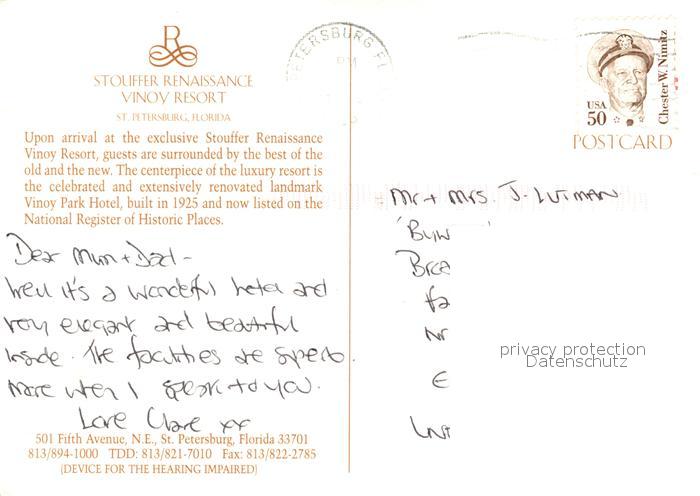 R
STOUFFER RENAISSANCE
VINOY RESORT
ST. PETERSBURG, FLORIDA
Upon arrival at the exclusive Stouffer Renaissance
Vinoy Resort, guests are surrounded by the best of the
old and the new. The centerpiece of the luxury resort is
the celebrated and extensively renovated landmark
Vinoy Park Hotel, built in 1925 and now listed on the
National Register of Historic Places.
Dear Mum + Dad -
Well it's a wonderful hotel and
very elegant and beautiful
inside. The facilities are superb.
more when I speak to you.
Love Clare xx
501 Fifth Avenue, N.E., St. Petersburg, Florida 33701
813/894-1000 TDD: 813/821-7010 Fax: 813/822-2785
(DEVICE FOR THE HEARING IMPAIRED)
PETERSBURG FL
PM
USA
50
Chester W. Nimitz
POSTCARD
Mr + Mrs. J. LUTMAN
privacy protection
Datenschutz